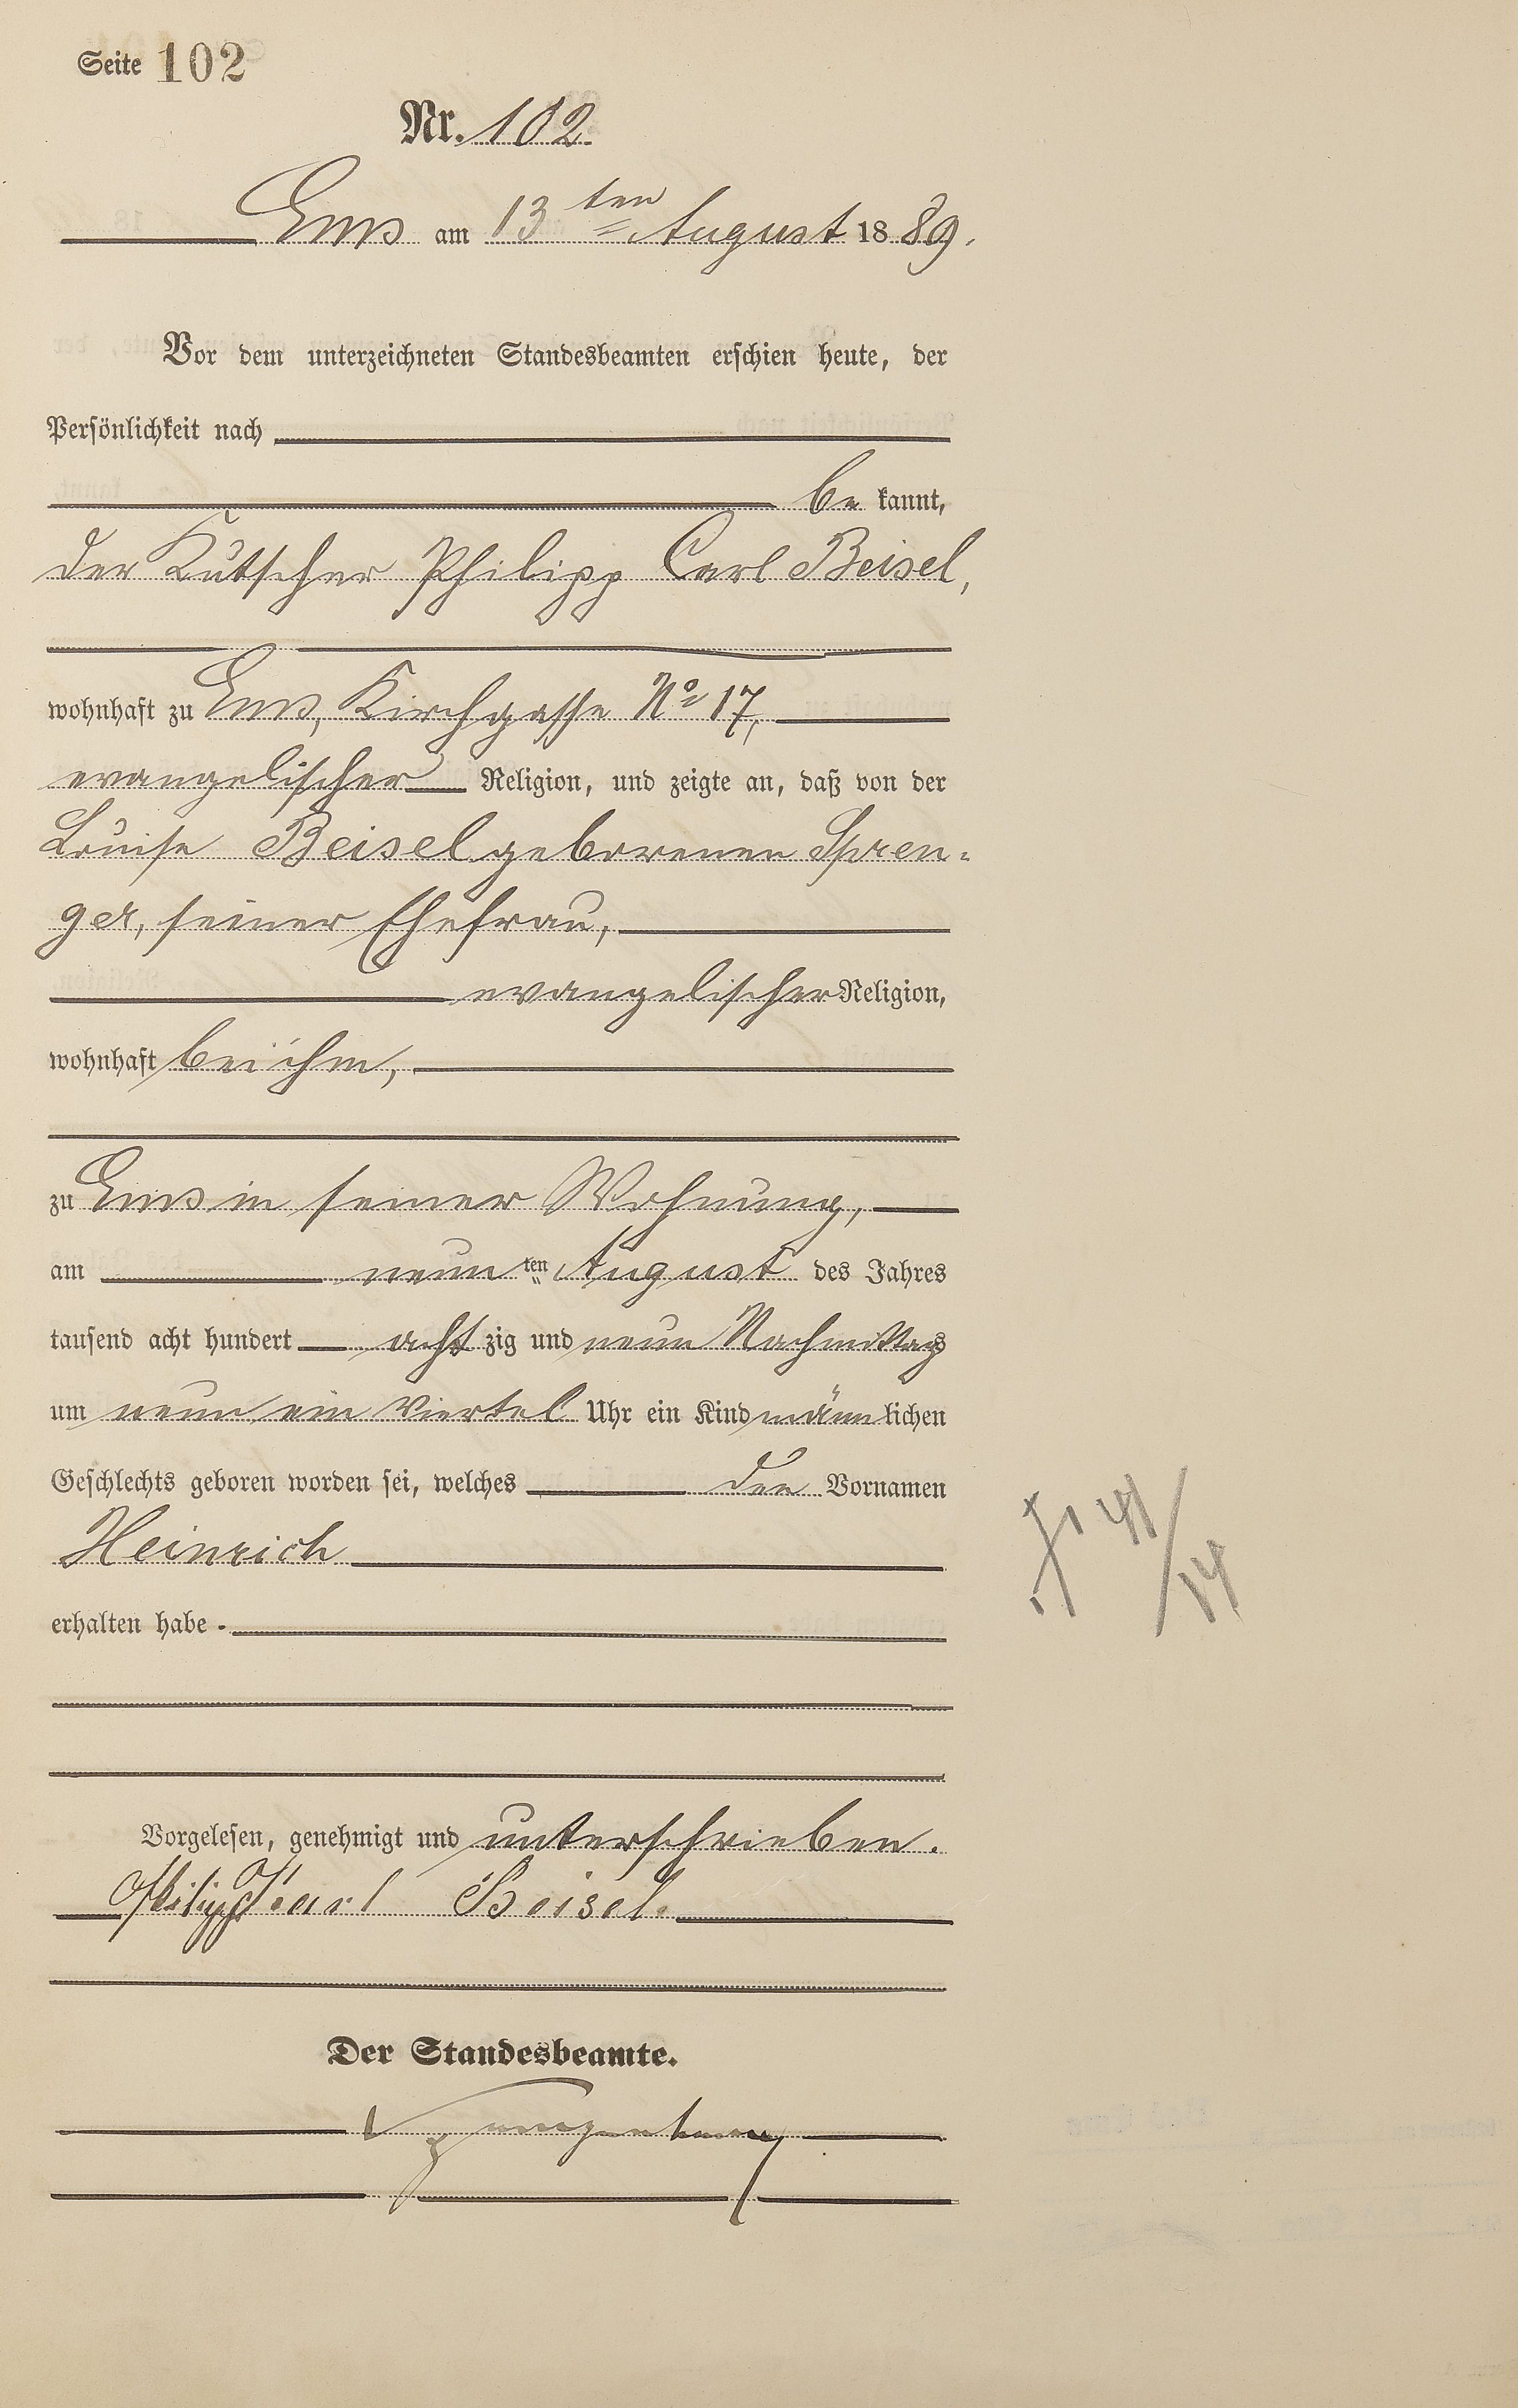 Seite 102
Nr. 102
Ems am 13ten August 1889.
Vor dem unterzeichneten Standesbeamten erschien heute, der
Persönlichkeit nach
be kannt,
der Kutscher Philipp Carl Beisel,
wohnhaft zu Ems, Kirchgasse No 17,
evangelischer Religion, und zeigte an, daß von der
Louise Beisel geborenen Spren-
ger, seiner Ehefrau,
evangelischer Religion,
wohnhaft bei ihm,
zu Ems in seiner Wohnung,
am neunten August des Jahres
tausend acht hundert acht zig und neun Nachmittags
um neun ein Viertel Uhr ein Kind männlichen
Geschlechts geboren worden sei, welches den Vornamen
Heinrich
erhalten habe.
Vorgelesen, genehmigt und unterschrieben.
Philipp Carl Beisel.
Der Standesbeamte.